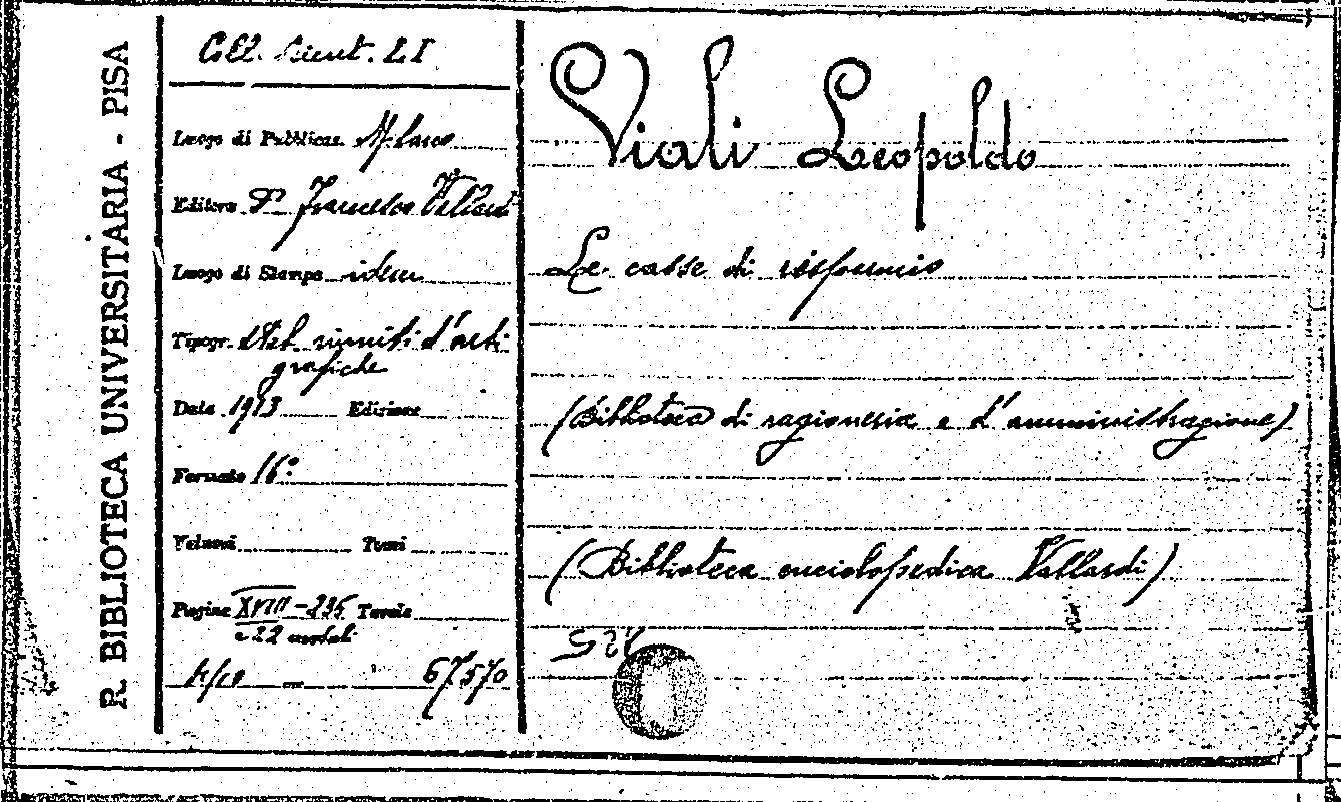 R. BIBLIOTECA UNIVERSITARIA - PISA
Coll. Scient. LI
Luogo di Pubblicaz. Milano
Editore Dr. Francesco Vallardi
Luogo di Stampa idem
Tipogr. Stab. riuniti d'arti
grafiche
Data 1913 Edizione
Formato 16°
Volumi Tomi
Pagine XVIII-235 Tavole
e 22
67570
Viali Leopoldo
Le casse di risparmio
(Biblioteca di ragioneria e d'amministrazione)
(Biblioteca enciclopedica Vallardi)